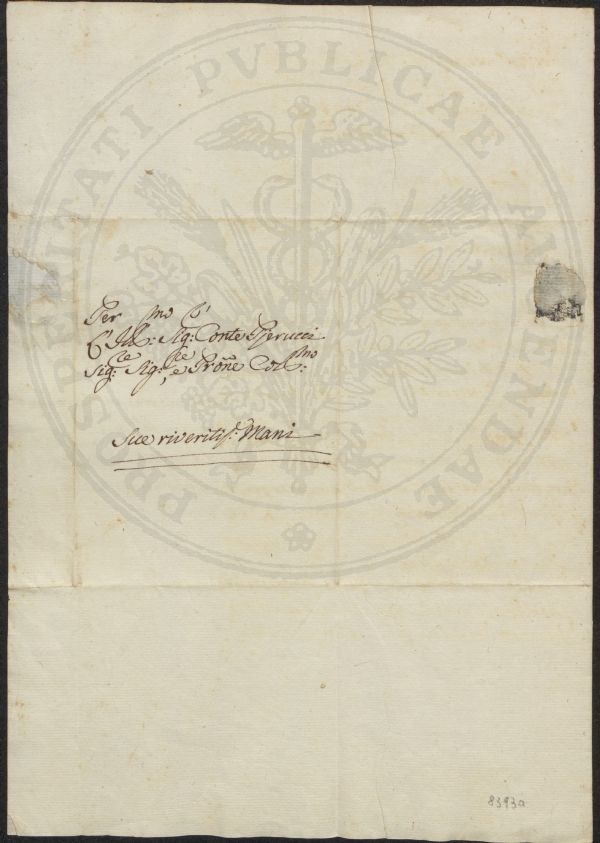 PROSPERITATI PVBLICAE AVGENDAE
Per
L'Ill:mo Sig:r Conte Pierucci
Sig:re Sig:re, e Prone Col:mo
Sue riveritis:e Mani
8393a